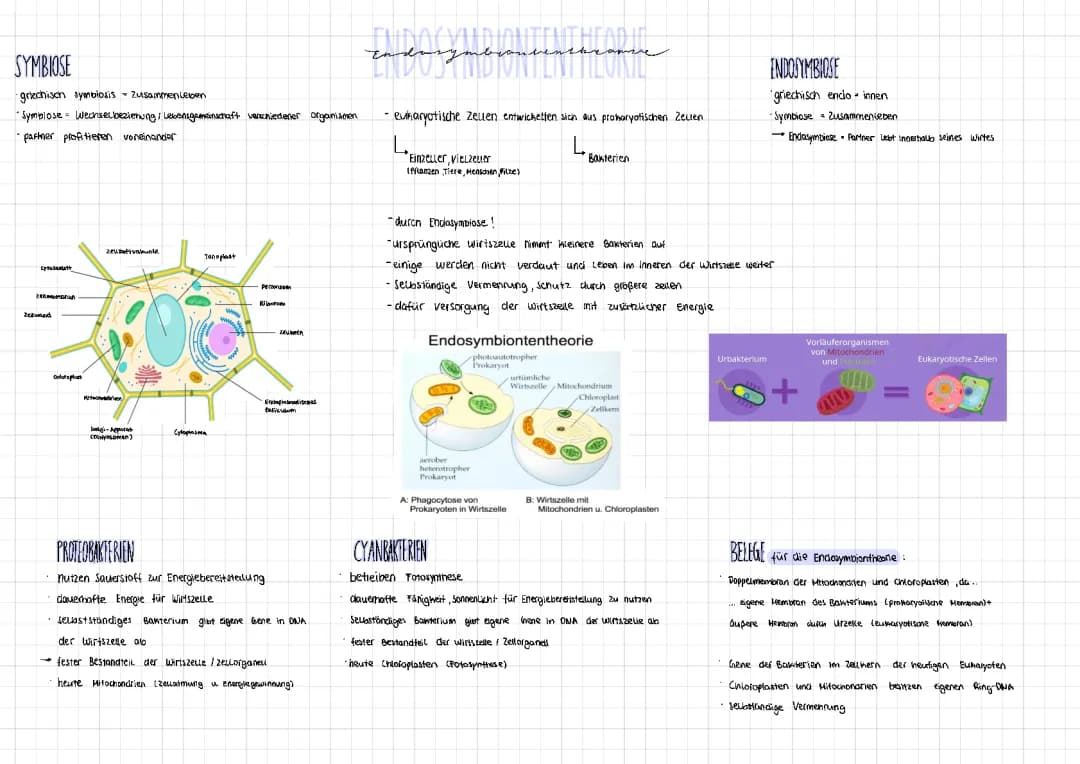 ENDOSYMBIONTENTHEORIE
SYMBIOSE
· griechisch symbiosis = Zusammenleben
· Symbiose = Wechselbeziehung / Lebensgemeinschaft verschiedener Organismen
· partner profitieren voneinander
- eukaryotische Zellen entwickelten sich aus prokaryotischen Zellen
Einzeller, Vielzeller
(Pflanzen, Tiere, Menschen, Pilze)
Bakterien
ENDOSYMBIOSE
· griechisch endo = innen
· Symbiose = Zusammenleben
→ Endosymbiose = Partner lebt innerhalb seines Wirtes
- durch Endosymbiose!
- ursprüngliche Wirtszelle nimmt kleinere Bakterien auf
- einige werden nicht verdaut und leben im inneren der Wirtszelle weiter
- selbständige Vermehrung, Schutz durch größere zellen
- dafür versorgung der wirtszelle mit zusätzlicher Energie
Zellsaftvakuole
Tonoplast
Zellmembran
Zellwand
Peroxisom
Ribosomen
Zellkern
Chloroplast
Mitochondrien
Golgi-Apparat
(Dictyosomen)
Cytoplasma
Endoplasmatisches
Retikulum
Endosymbiontentheorie
photoautotropher
Prokaryot
urtümliche
Wirtszelle
Mitochondrium
Chloroplast
Zellkern
aerober
heterotropher
Prokaryot
A: Phagocytose von
Prokaryoten in Wirtszelle
B: Wirtszelle mit
Mitochondrien u. Chloroplasten
Urbakterium
Vorläuferorganismen
von Mitochondrien
und
Eukaryotische Zellen
PROTEOBAKTERIEN
· nutzen Sauerstoff zur Energiebereitstellung
· dauerhafte Energie für Wirtszelle
· selbstständiges Bakterium gibt eigene Gene in DNA
der Wirtszelle ab
→ fester Bestandteil der Wirtszelle / Zellorganell
· heute Mitochondrien (Zellatmung u. Energiegewinnung)
CYANBAKTERIEN
· betreiben Fotosynthese
· dauerhafte Fähigkeit, Sonnenlicht für Energiebereitstellung zu nutzen
· Selbständiges Bakterium gibt eigene Gene in DNA der Wirtszelle ab
· fester Bestandteil der Wirtszelle / Zellorganell
· heute Chloroplasten (Fotosynthese)
BELEGE für die Endosymbiontheorie :
· Doppelmembran der Mitochondrien und Chloroplasten, da..
... eigene Membran des Bakteriums (prokaryotische Membran)+
äußere Membran durch Urzelle (eukaryotische Membran)
· Gene der Bakterien im Zellkern der heutigen Eukaryoten
· Chloroplasten und Mitochondrien besitzen eigenen Ring-DNA
· selbständige Vermehrung